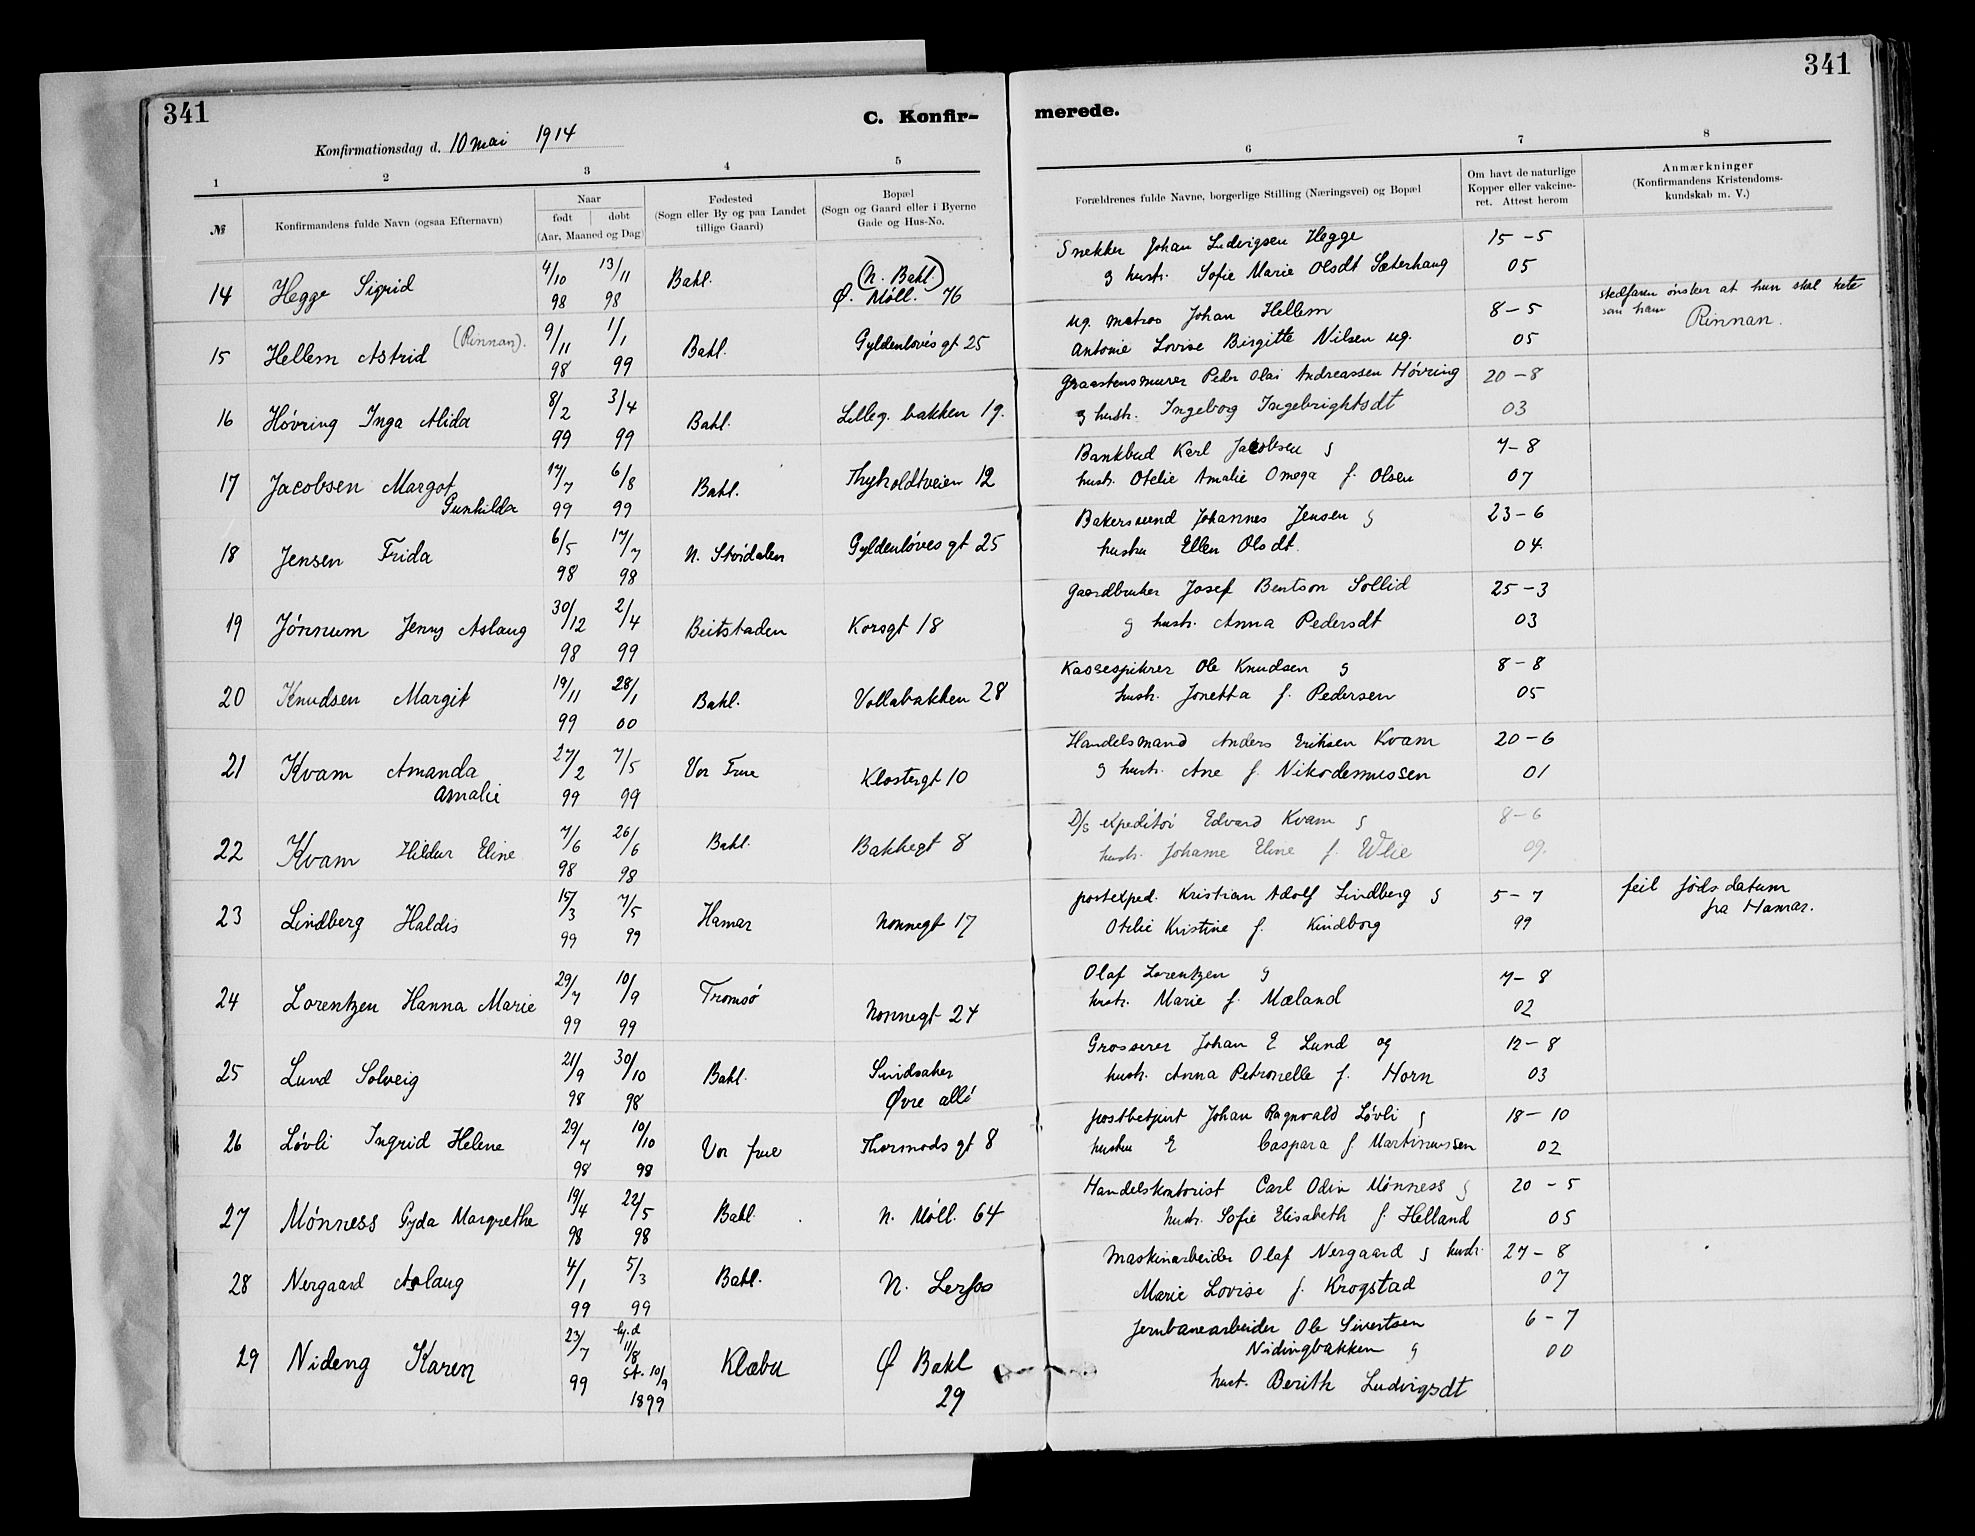 341
341
C. Konfir-
merede.
Konfirmationsdag d. 10 mai 1914
1 2 3 4 5 6 7 8
№
Konfirmandens fulde Navn (ogsaa Efternavn)
Naar
født døbt
(Aar, Maaned og Dag)
Fødested
(Sogn eller By og paa Landet
tillige Gaard)
Bopæl
(Sogn og Gaard eller i Byerne
Gade og Hus-No.
Forældrenes fulde Navne, borgerlige Stilling (Næringsvei) og Bopæl
Om havt de naturlige
Kopper eller vakcine-
ret. Attest herom
Anmærkninger
(Konfirmandens Kristendoms-
kundskab m. V.)
14 Hegge Sigrid 4/10 98 13/11 98 Bakl. (N. Bakl.)
Ø. Møll. 76
Snekker Johan Ludvigsen Hegge 15-5
g hustr. Sofie Marie Olsdt Sæterhaug 05
15 Hellem Astrid (Rinnan). 9/11 98 1/1 99 Bakl. Gyldenløves gt 25
ug. matros Johan Hellem 8-5
Antonie Lovise Birgitte Nilsen ug. 05
stedfaren ønsker at hun skal hete
som ham Rinnan.
16 Høvring Inga Alida 8/2 99 3/4 99 Bakl. Lilleg. bakken 19.
Graastensmurer Peder Olai Andreassen Høvring 20-8
g hustr. Ingeborg Ingebrightsdt 03
17 Jacobsen Margot
Gunhilda 17/7 99 6/8 99 Bakl. Thyholdtveien 12
Bankbud Karl Jacobsen g 7-8
hustr. Otelie Amalie Omega f. Olsen 07
18 Jensen Frida 6/5 98 17/7 98 N. Stördalen Gyldenløves gt 25
Bakersvend Johannes Jensen g 23-6
hustru Ellen Olsdt. 04.
19 Jønnum Jenny Aslaug 30/12 98 2/4 99 Beitstaden Korsgt 18
Gaardbruker Josef Bentson Sollid 25-3
g hustr. Anna Pedersdt 03
20 Knudsen Margit 19/11 99 28/1 00 Bakl. Vollabakken 28
Kassespikrer Ole Knudsen g 8-8
hustr. Jonetta f. Pedersen 05
21 Kvam Amanda
Amalie 27/2 99 7/5 99 Vor Frue Klostergt 10
Handelsmand Anders Eriksen Kvam 20-6
g hustr. Ane f. Nikodemussen 01
22 Kvam Hildur Eline 7/6 98 26/6 98 Bakl. Bakkegt 8
D/s expeditør Edvard Kvam g 8-6
hustr. Johanne Eline f. Wlie 09.
23 Lindberg Haldis 15/3 99 7/5 99 Hamar Nonnegt 17
postexped. Kristian Adolf Lindberg g 5-7
Otelie Kristine f. Kindborg 99
feil fødsdatum
fra Hamar.
24 Lorentzen Hanna Marie 29/7 99 10/9 99 Tromsø Nonnegt 24
Olaf Lorentzen g 7-8
hustr. Marie f. Mæland 02
25 Lund Solveig 21/9 98 30/10 98 Bakl. Sindsaker
Øvre allé
Grosserer Johan E Lund og 12-8
hustr. Anna Petronelle f. Horn 03
26 Løvli Ingrid Helene 29/7 98 10/10 98 Vor frue Thormods gt 8
postbetjent Johan Ragnvald Løvli g 18-10
hustru E Caspara f Martinussen 02
27 Mønness Gyda Margrethe 19/4 98 22/5 98 Bakl. N. Møll. 64
Handelskontorist Carl Odin Mønness g 20-5
hustr. Sofie Elisabeth f. Helland 05
28 Nergaard Aslaug 4/1 99 5/3 99 Bakl. N. Lerfos
Maskinarbeider Olaf Nergaard g hustr. 27-8
Marie Lovise f. Krogstad 07
29 Nideng Karen 23/7 99 hj.d 11/8 St. 10/9 1899 Klæbu Ø Bakl
29
Jernbanearbeider Ole Sivertsen 6-7
Nidingbakken g 00
hust. Berith Ludvigsdt